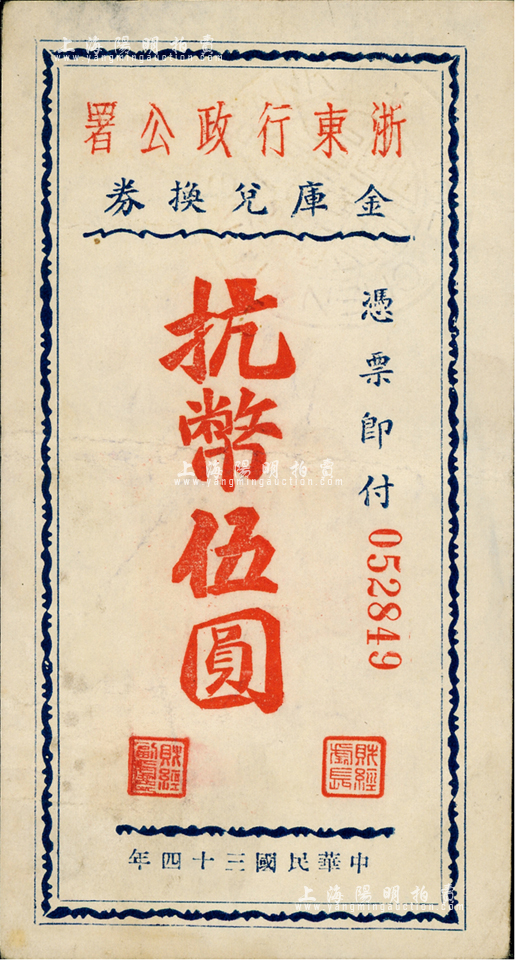 上海陽明拍賣
www.yangmingauction.com
浙東行政公署
金庫兌換券
憑票即付
052849
抗幣伍圓
上海陽明拍賣
www.yangmingauction.com
財經處長
財經副處長
中華民國三十四年
上海陽明拍賣
www.yangmingauction.com